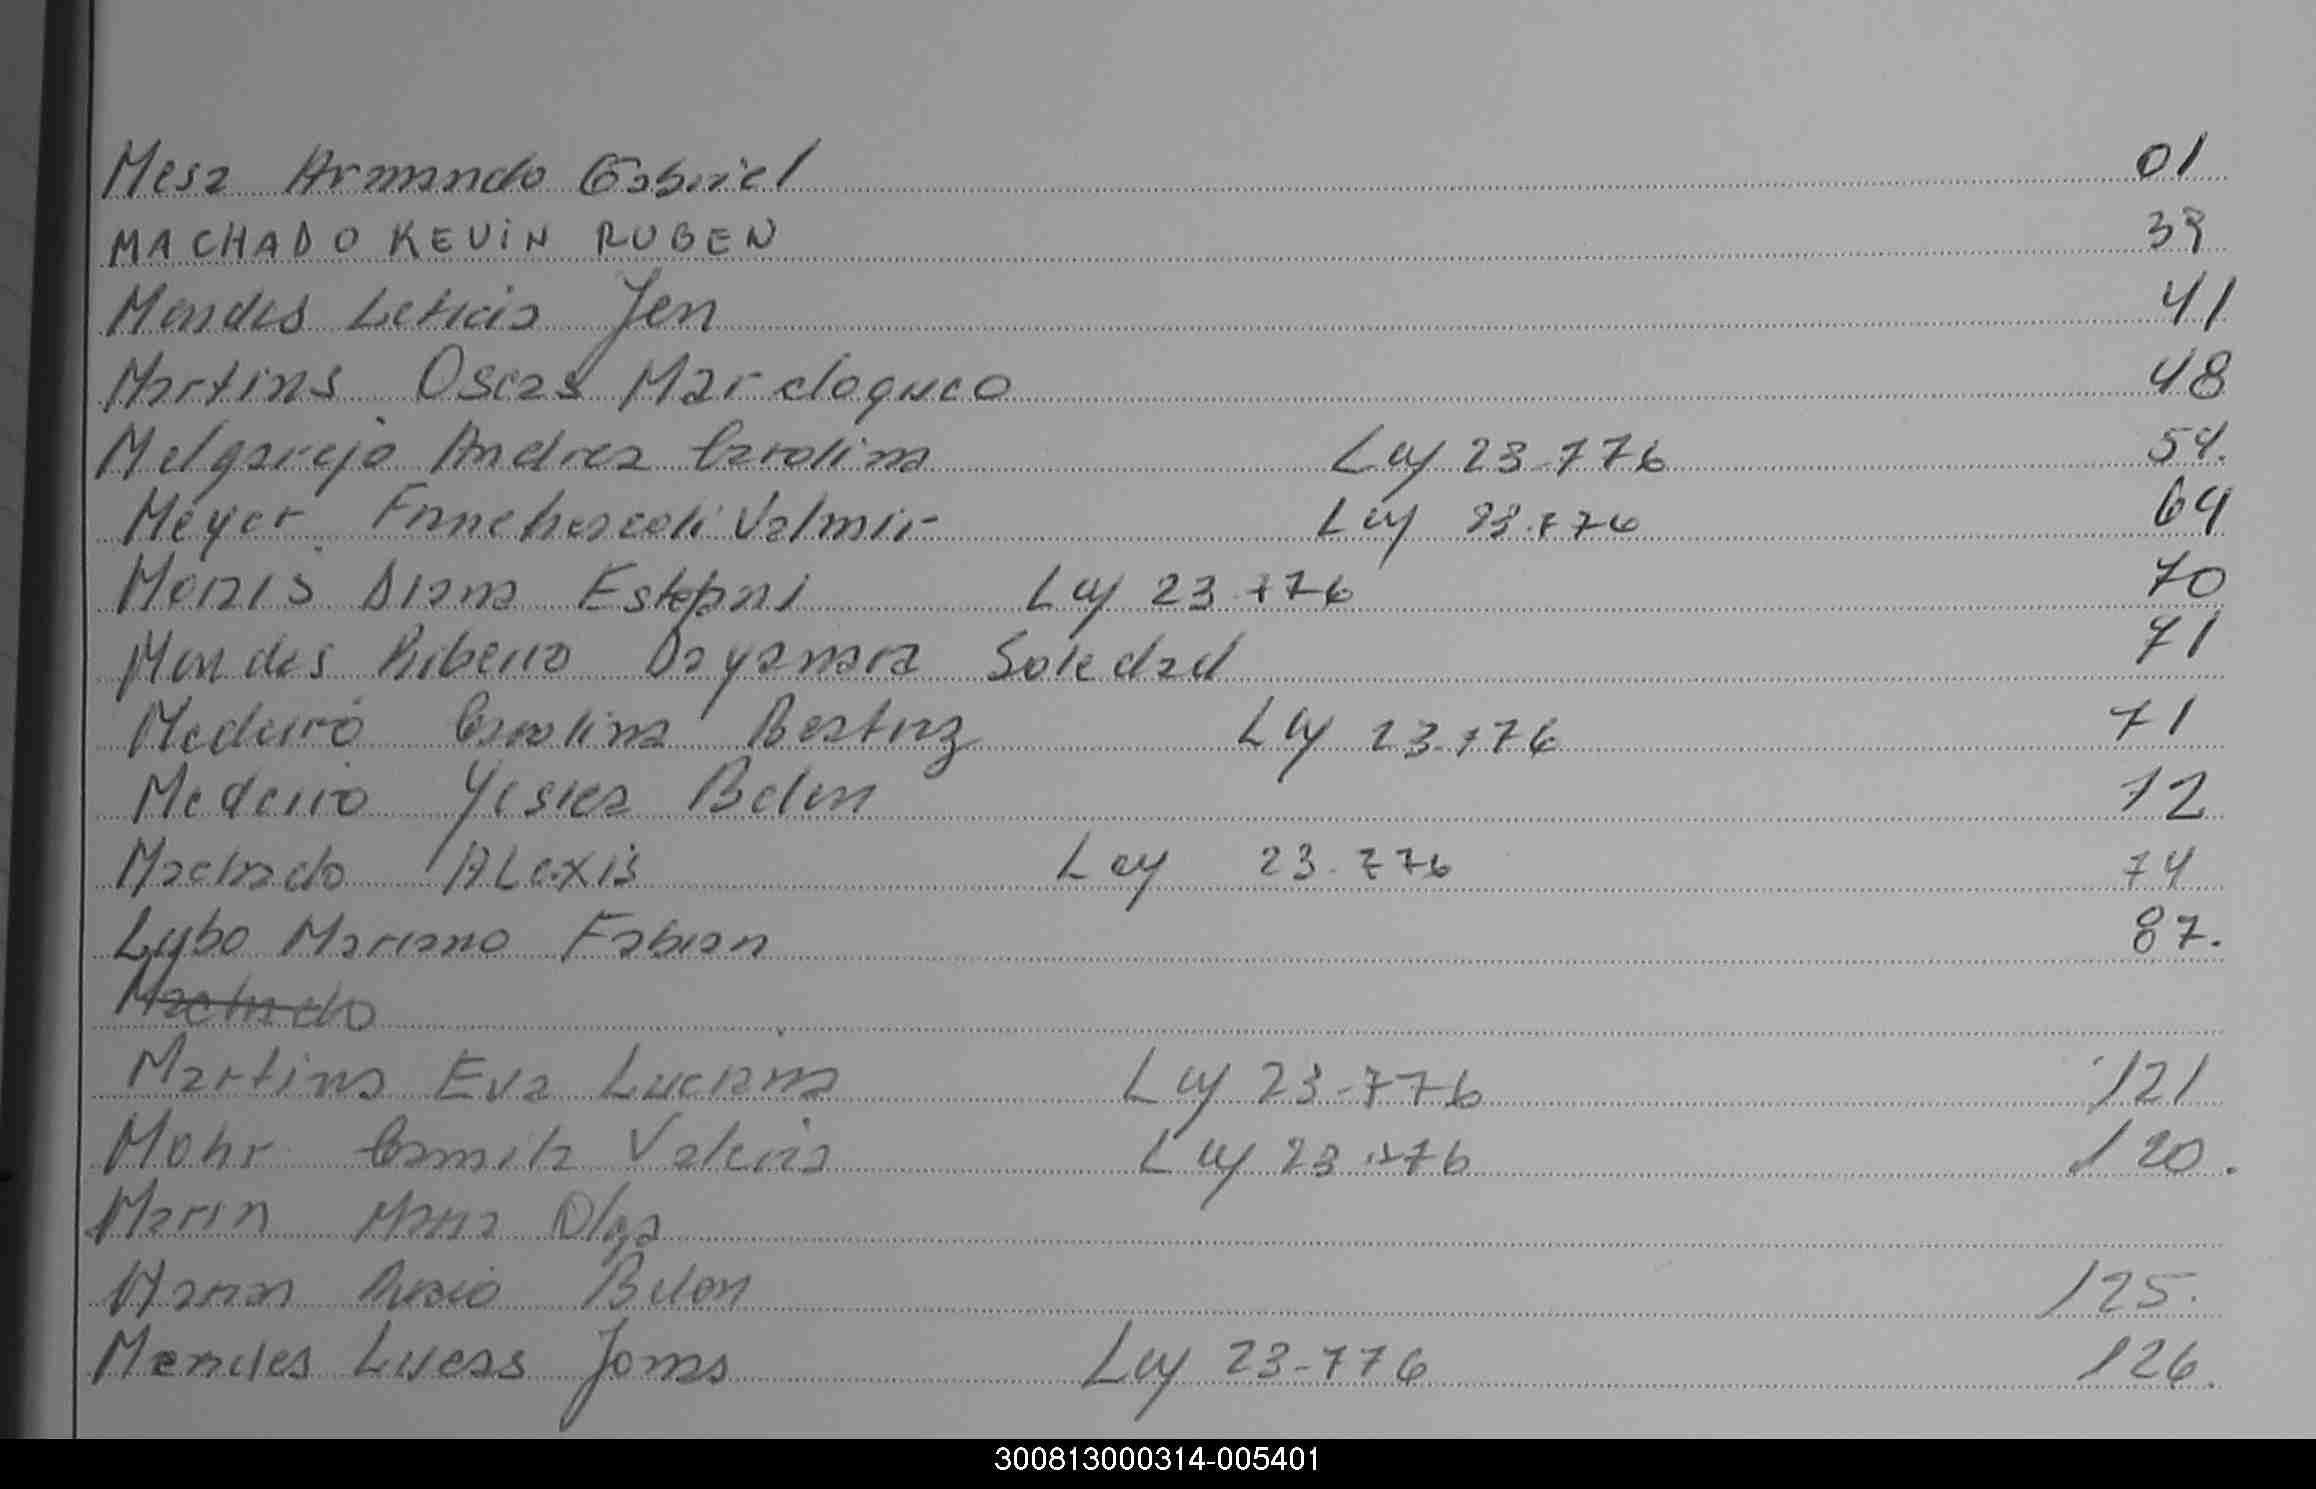 Mesa Armando Gabriel 01
MACHADO KEVIN RUBEN 39
Mendes Leticia Jen 41
Martins Oscar Mardoqueo 48
Melgarejo Andrea Carolina Ley 23-776 54.
Meyer Valmir Ley 23.776 64
Diana Ley 23.776 70
Mendes Ribeiro Soledad 71
Medeiro Carolina Beatriz Ley 23.776 71
Medeiro Yesica Belen 72
Machado ALexis Ley 23.776 74
Lybo Mariano Fabian 87.
Machado
Martins Eva Luciana Ley 23-776 121
Mohr Camila Valeria Ley 23.776 120.
Marin Maria Olga
Marin Rocio Belen 125.
Mendes Lucas Jonas Ley 23-776 126.
300813000314-005401